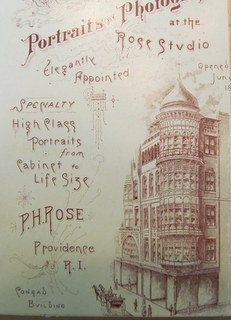 Portraits
at the
Rose Studio
Elegantly
Appointed
Opened
Specialty
High Class
Portraits
from
Cabinet to
Life Size
P.H. ROSE
Providence
R.I.
Conrad
Building